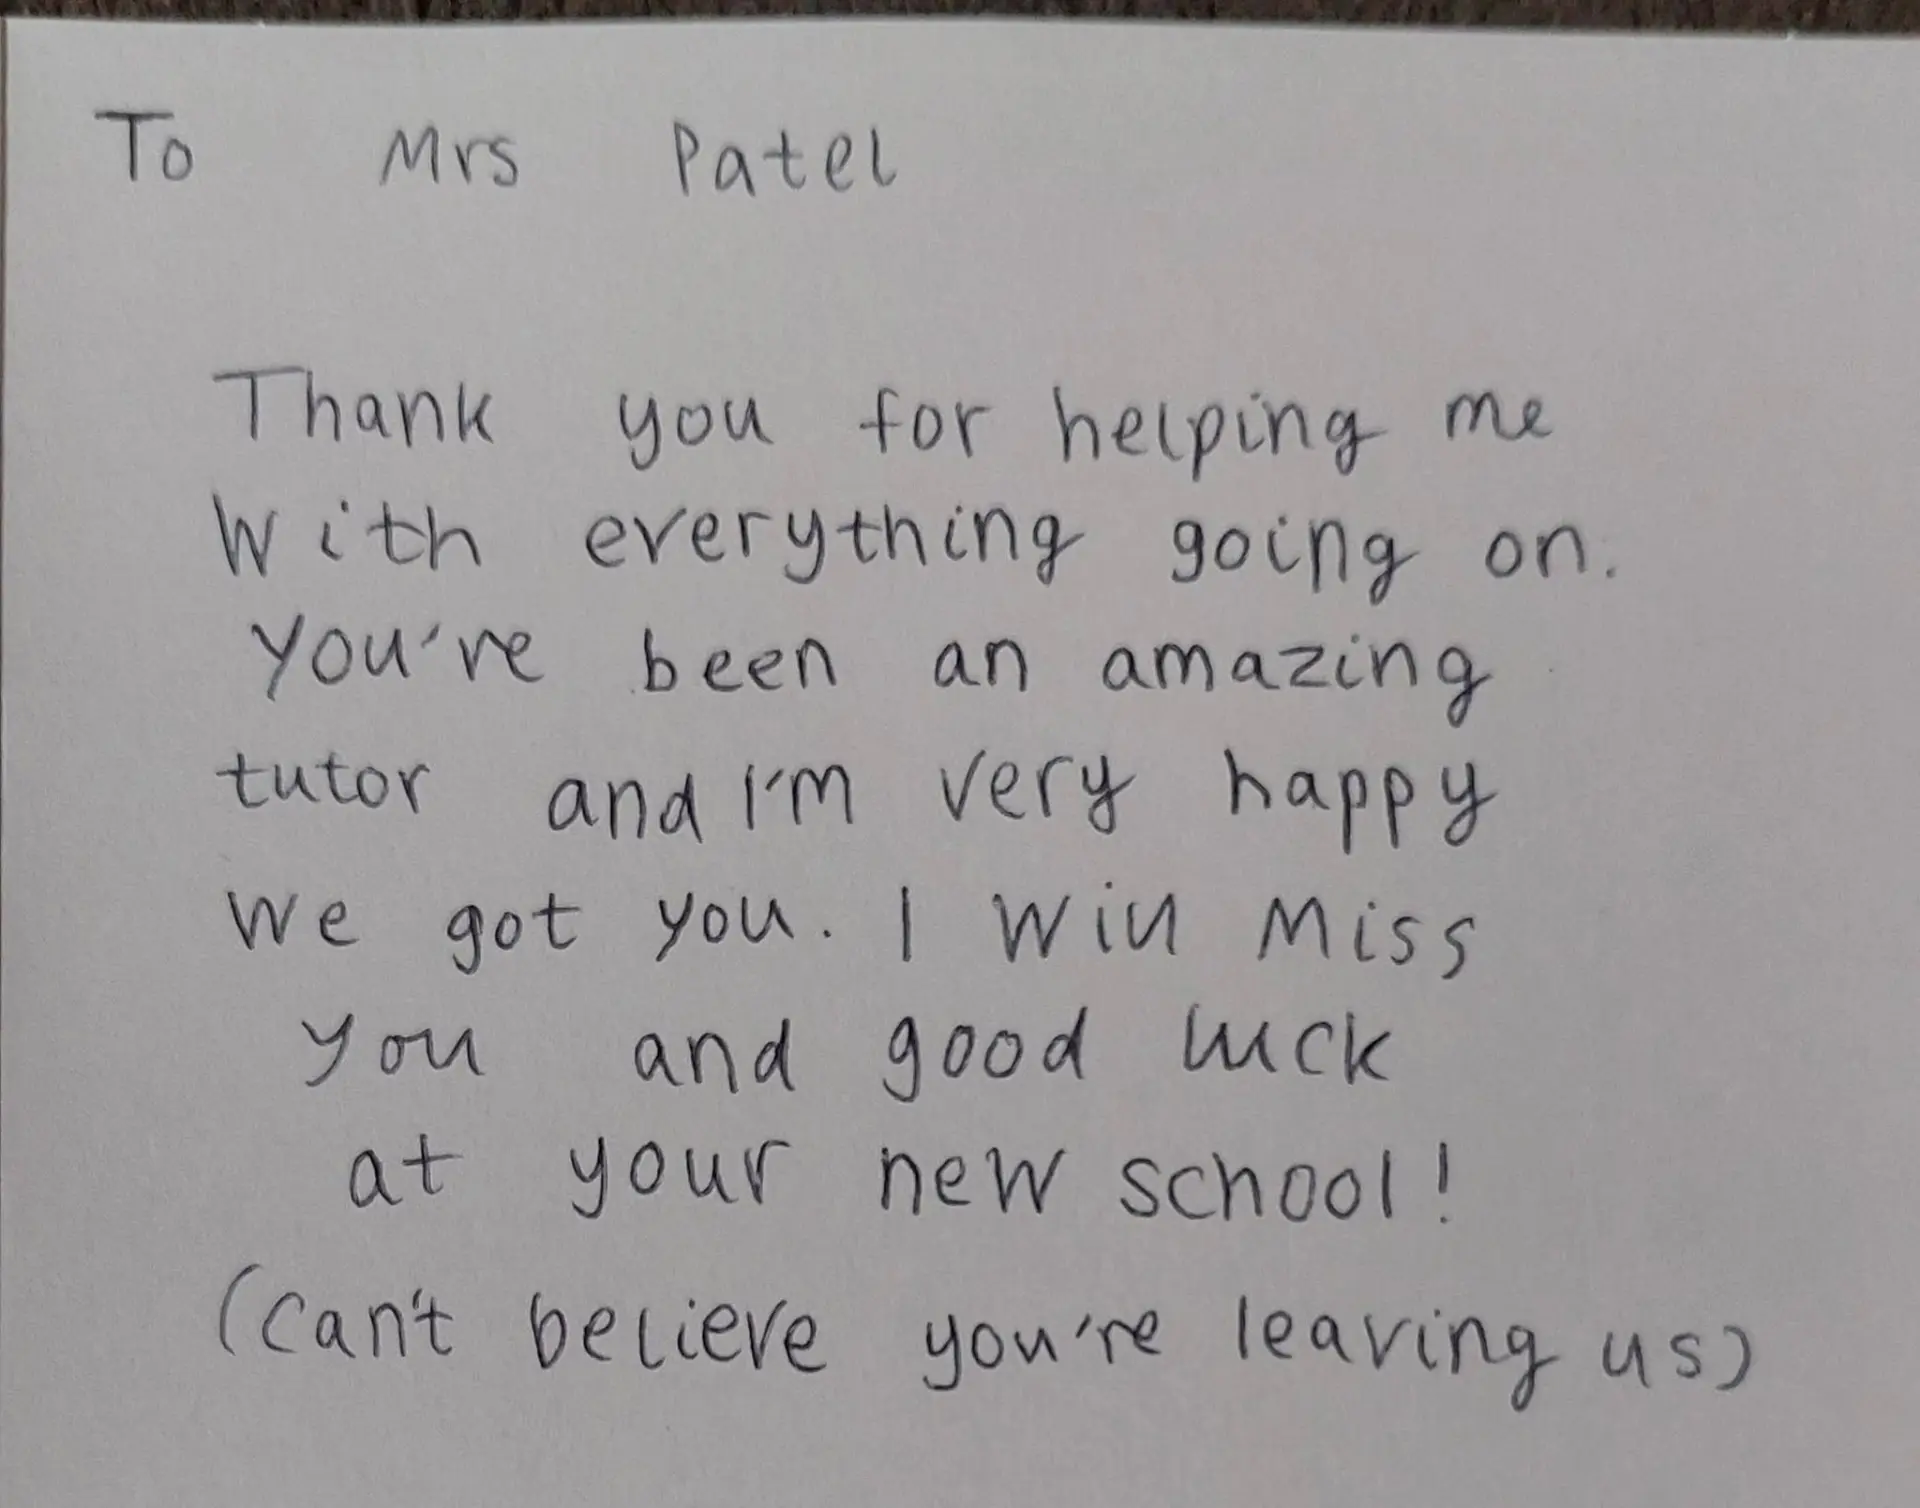 To Mrs Patel
Thank you for helping me
with everything going on.
You're been an amazing
tutor and I'm very happy
we got you. I will miss
you and good luck
at your new school!
(can't believe you're leaving us)